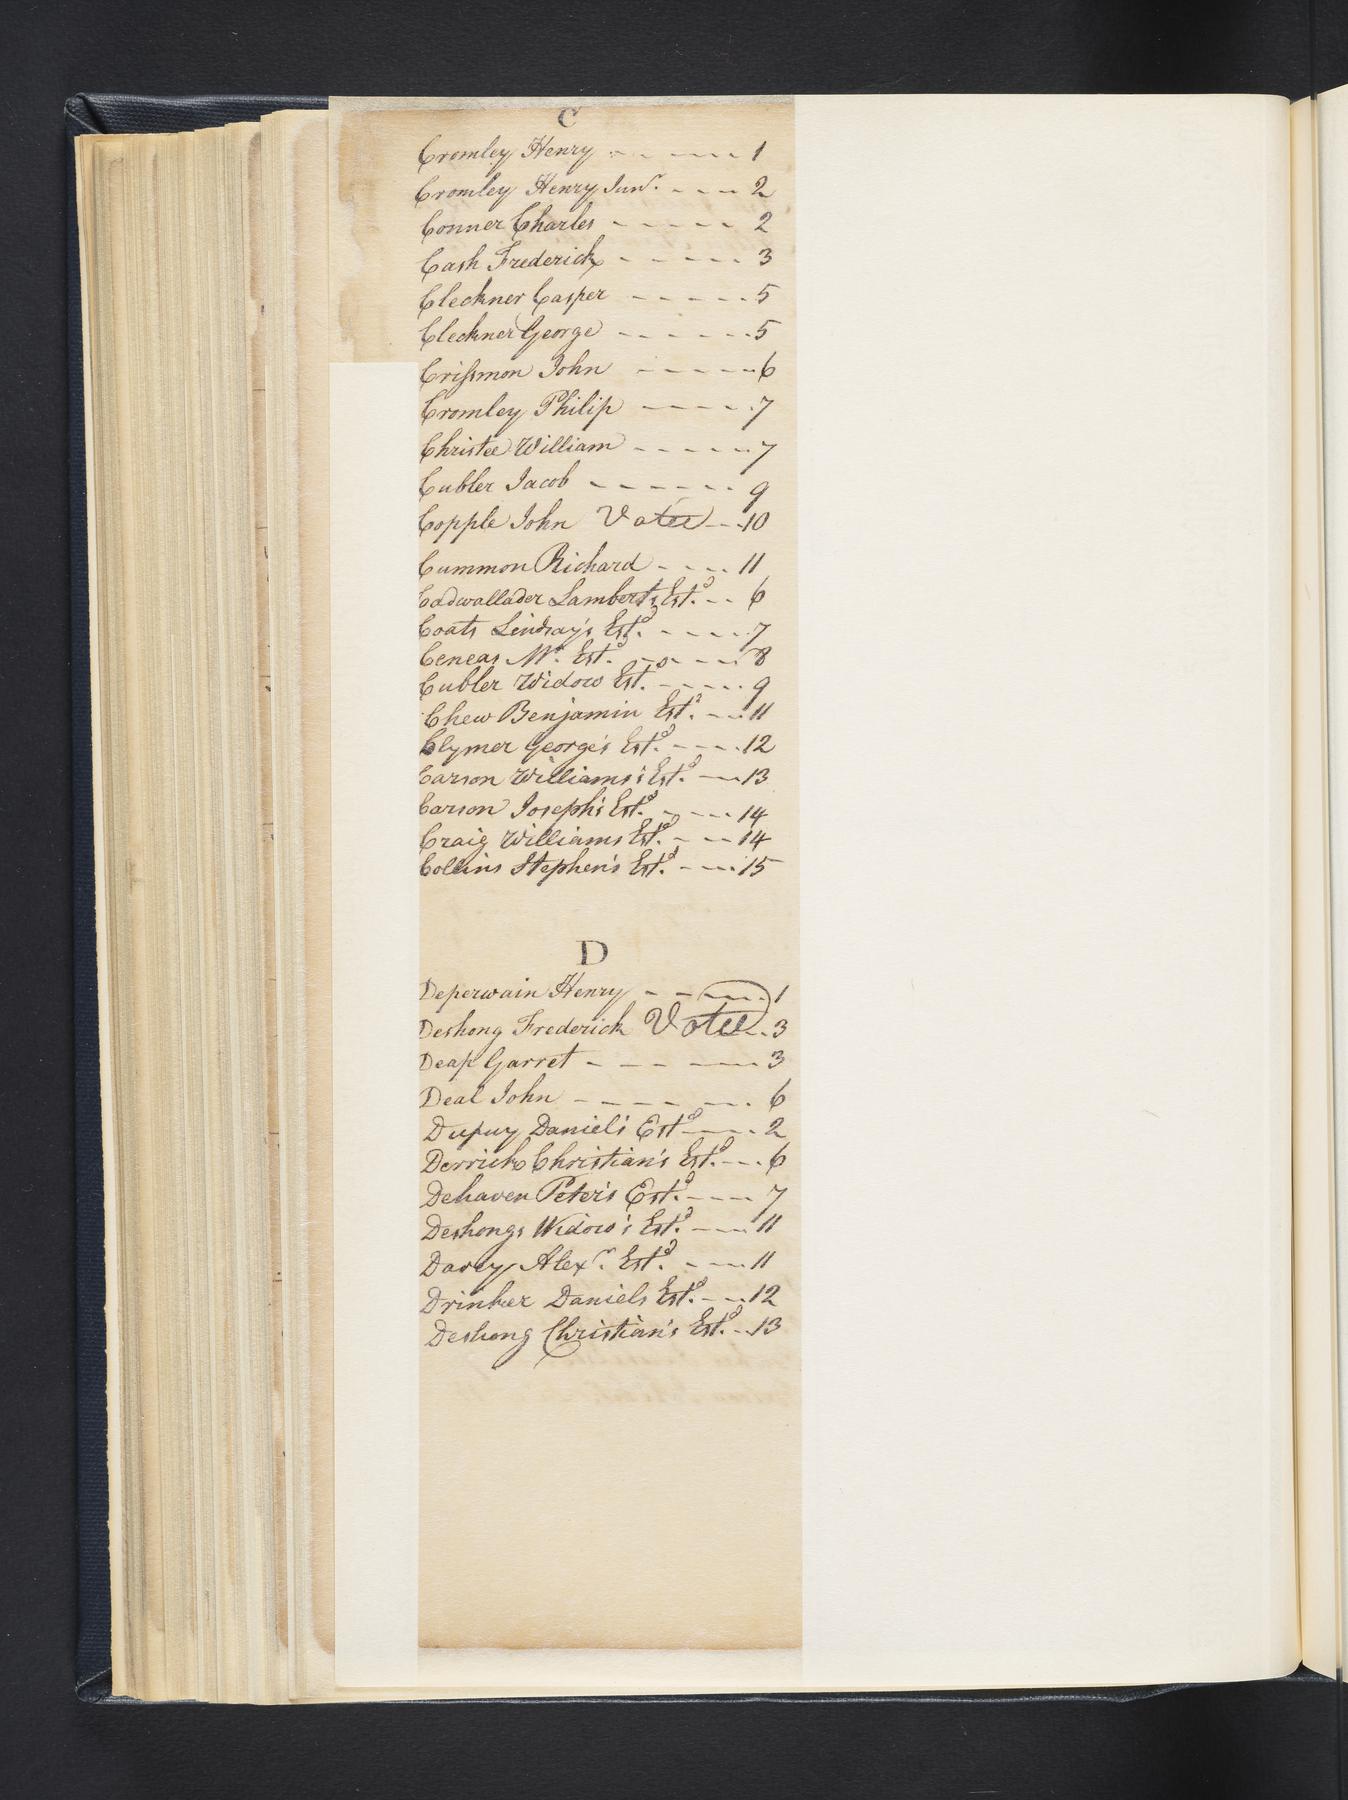 C
Cromley Henry - - - - - - 1
Cromley Henry Junr. - - - 2
Conner Charles - - - - - 2
Cash Frederick - - - - - 3
Cleckner Casper - - - - - 5
Cleckner George - - - - - 5
Crissmon John - - - - - 6
Cromley Philip - - - - - 7
Christee William - - - - - 7
Cubler Jacob - - - - - - 9
Copple John Votee - - 10
Cummon Richard - - - - 11
Cadwallader Lamberts Estd. - - 6
Coats Lindsay's Estd. - - - - 7
Ceneas Mr. Estd. - - - - - 8
Cubler Widow Estd. - - - - 9
Chew Benjamin Estd. - - 11
Clymer George's Estd. - - - 12
Carson Williams's Estd. - - 13
Carson Joseph's Estd. - - - - 14
Craig Williams Estd. - - - 14
Collins Stephen's Estd. - - - 15
D
Deperwain Henry - - - - - 1
Deshong Frederick Votee - 3
Deap Garret - - - - - - 3
Deal John - - - - - - 6
Dupuy Daniel's Estd - - - 2
Derrick Christian's Estd. - - - 6
Dehaven Peter's Estd. - - - 7
Deshongs Widow's Estd. - - - 11
Davey Alexr. Estd. - - - 11
Drinker Daniels Estd. - - 12
Deshong Christian's Estd. - - 13